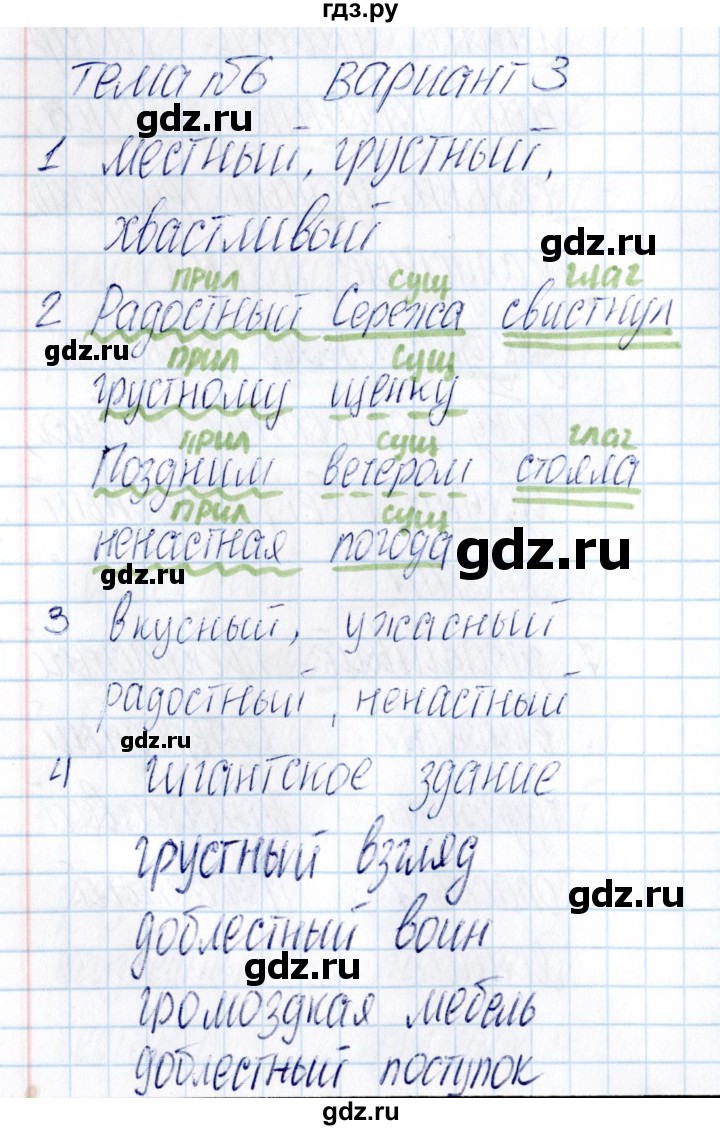 гдз.ру
Тема №6 вариант 3
gdz.ru
1 местный, грустный,
хвастливый
gdz.ru
прил сущ глаг
2 Радостный Сережа свистнул
gdz.ru
прил сущ
грустному щенку
прил сущ глаг
Поздним вечером стояла
прил сущ
ненастная погода
gdz.ru
gdz.ru
3 вкусный, ужасный
радостный, ненастный
gdz.ru
4 гигантское здание
грустный взгляд
gdz.ru
доблестный воин
gdz.ru
громоздкая мебель
доблестный поступок
gdz.ru